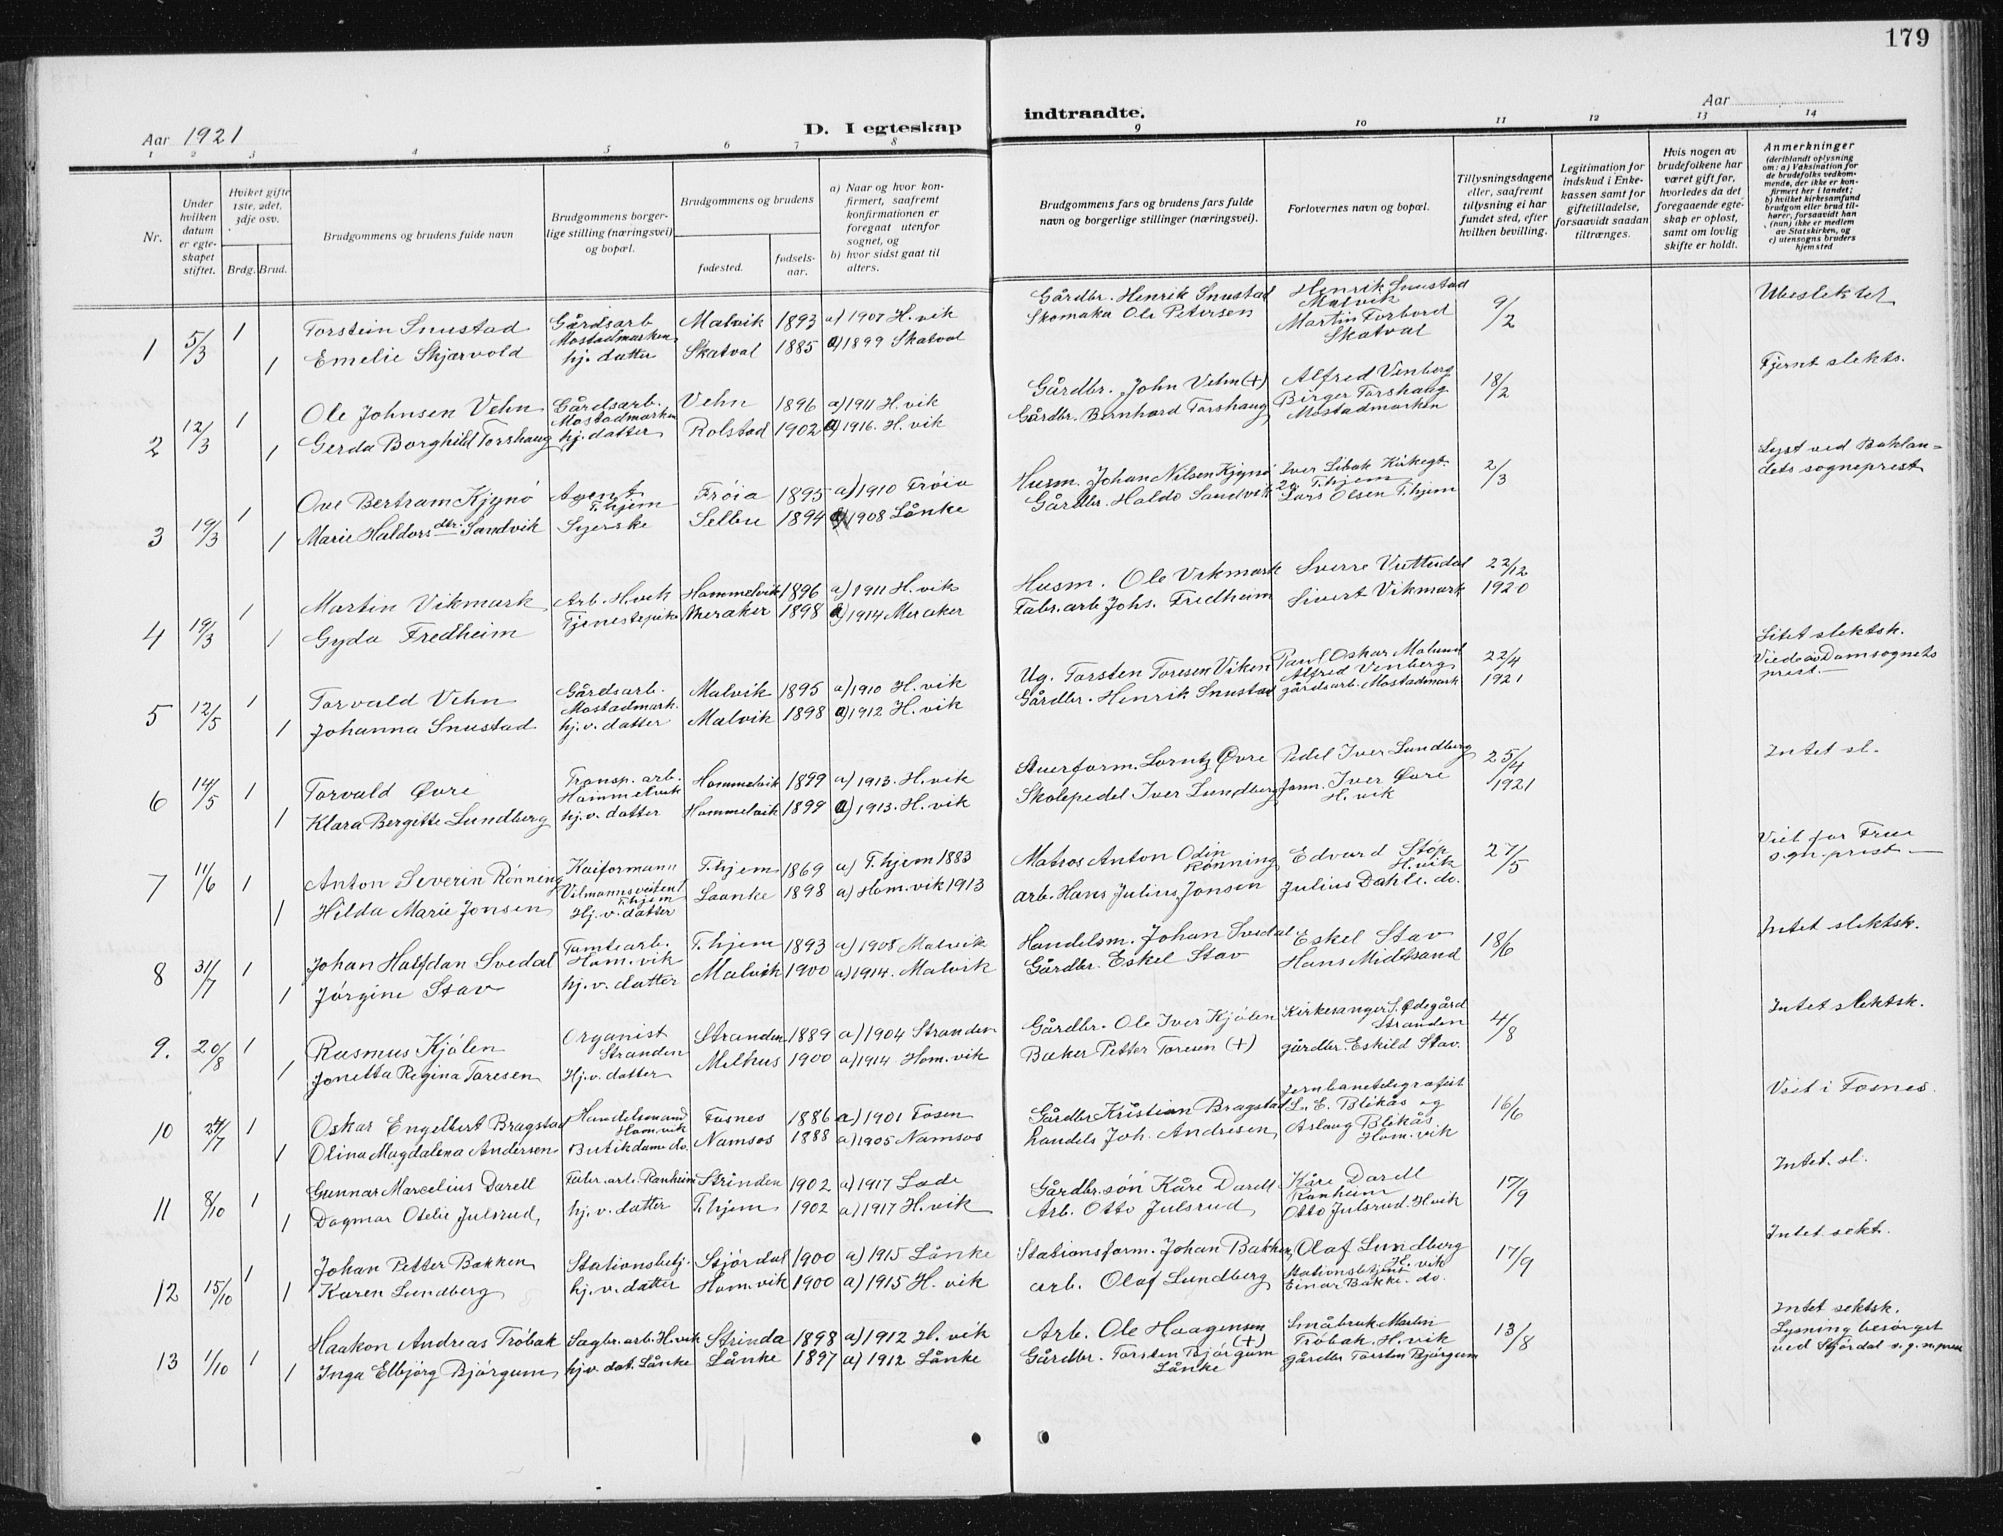 179
Aar 1921
D. I egteskap
indtraadte.
Aar
1 2 3 4 5 6 7 8 9 10 11 12 13 14
Nr.
Under hvilken datum er egteskapet stiftet.
Hviket gifte 1ste, 2det, 3dje osv.
Brdg. Brud.
Brudgommens og brudens fulde navn
Brudgommens borgerlige stilling (næringsvei) og bopæl.
Brudgommens og brudens
fødested.
fødsels-aar.
a) Naar og hvor konfirmert, saafremt konfirmationen er foregaat utenfor sognet, og
b) hvor sidst gaat til alters.
Brudgommens fars og brudens fars fulde navn og borgerlige stillinger (næringsvei).
Forlovernes navn og bopæl.
Tillysningsdagene eller, saafremt tillysning ei har fundet sted, efter hvilken bevilling.
Legitimation for indskud i Enkekassen samt for giftetilladelse, forsaavidt saadan tiltrænges.
Hvis nogen av brudefolkene har været gift før, hvorledes da det foregaaende egteskap er opløst, samt om lovlig skifte er holdt.
Anmerkninger
(deriblandt oplysning om: a) Vaksination for de brudefolks vedkommende, der ikke er konfirmert her i landet; b) hvilket kirkesamfund brudgom eller brud tilhører, forsaavidt han (hun) ikke er medlem av Statskirken, og c) utensogns bruders hjemsted
1 5/3 1 Torstein Snustad Gårdsarb Mostadmarken Malvik 1893 a) 1907 H.vik Gårdbr. Henrik Snustad Henrik Snustad Malvik 9/2 Ubeslektet
1 Emelie Skjærvold hj. datter Skatval 1885 a) 1899 Skatval Skomaker Ole Petersen Martin Forbord Skatval
2 12/3 1 Ole Johnsen Vehn Gårdsarb. Mostadmarken Vehn 1896 a) 1911 H.vik Gårdbr. John Vehn (+) Alfred Venberg 18/2 Fjernt slekts.
1 Gerda Borghild Torshaug hj. datter Rolstad 1902 a) 1916. H.vik Gårdbr. Bernhard Torshaug Birger Torshaug Mostadmarken
3 19/3 1 Ove Bertram Kjynø Agent T.hjem Frøia 1895 a) 1910 Frøia Husm. Johan Nilsen Kjynø Iver Libak Kirkegt. 2a T.hjem 2/3 Lyst ved Baklandets sogneprest
1 Marie Haldorsdtr. Sandvik Syerske Selbu 1894 a) 1908 Lånke Gårdbr. Haldo Sandvik Lars Olsen T.hjem
4 19/3 1 Martin Vikmark Arb. H.vik Hommelvik 1896 a) 1911 H.vik Husm. Ole Vikmark Sverre Vuttudal 22/12
1 Gyda Fredheim Tjenestepike Meraker 1898 a) 1914 Meraker Fabr. arb Johs. Fredheim Sivert Vikmark 1920
5 12/5 1 Torvald Vehn Gårdsarb. Mostadmark. Malvik 1895 a) 1910 H.vik Ug. Torsten Toresen Viken Paul Oskar Malund 22/4 Litet slektsk. Viede av Domsognets prest.
1 Johanna Snustad hj. v. datter Malvik 1898 a) 1912 H.vik Gårdbr. Henrik Snustad Alfred Venberg gårdsarb. Mostadmark 1921
6 14/5 1 Torvald Øvre Transp. arb. Hommelvik Hommelvik 1899 a) 1913. H.vik Stuerform. Lorntz Øvre Pedel Iver Lundberg 25/4 Intet sl.
1 Klara Bergitte Lundberg hj. v. datter Hommelvik 1899 a) 1913. H.vik Skolepedel Iver Lundberg Iver Øvre H.vik 1921
7 11/6 1 Anton Severin Rønning Kaiformann T.hjem T.hjem 1869 a) T.hjem 1883 Matros Anton Odin Rønning Edvard Støp H.vik 27/5 Viet for Frue sgn. prest
1 Hilda Marie Jonsen Hj. v. datter Laanke 1898 a) Hom.vik 1913 arb. Hans Julius Jonsen Julius Dahle. do.
8 31/7 1 Johan Halfdan Svedal Tomtearb. Hom.vik T.hjem 1893 a) 1908 Malvik Handelsm. Johan Svedal Eskel Stav 18/6 Intet slektsk.
1 Jørgine Stav hj. v. datter Malvik 1900 a) 1914. Malvik Gårdbr. Eskel Stav Hans Midtsand
9. 20/8 1 Rasmus Kjølen Organist Stranden Stranden 1889 a) 1904 Stranden Gårdbr. Ole Iver Kjølen Kirkesanger S. Ødegård Stranden 4/8 Intet slektsk.
1 Jonetta Regina Toresen Hj. v. datter Melhus 1900 a) 1914 Hom.vik Baker Petter Toresen (+) gårdbr. Eskild Stav.
10 24/7 1 Oskar Engelbert Bragstad Handelsmand Hom.vik Fosnes 1886 a) 1901 Fosen Gårdbr Kristian Bragstad Jernbanetelegrafist L. E. Blikås og 16/6 Viet i Fosnes.
1 Olina Magdalena Andersen Butikdame do. Namsos 1888 a) 1905 Namsos Joh. Andresen Aslaug Blikås. Hom.vik
11 8/10 1 Gunnar Marcelius Darell Fabr. arb. Ranheim Strinden 1902 a) 1917 Lade Gårdbr.søn Kåre Darell Kåre Darell Ranheim 17/9 Intet. sl.
1 Dagmar Otelie Julsrud hj. v. datter T.hjem 1902 a) 1917 H.vik Arb. Otto Julsrud Otto Julsrud. H.vik
12 15/10 1 Johan Petter Bakken Stationsbetj. Stjørdal 1900 a) 1915 Lånke Stationsform. Johan Bakken Olaf Lundberg H.vik 17/9 Intet sekt.
1 Karen Lundberg hj. v. datter Hom.vik 1900 a) 1915 H.vik arb. Olaf Lundberg Stationsbetjent Einar Bakke. do.
13 1/10 1 Haakon Andreas Trøbak Sagbr. arb. H.vik Strinda 1898 a) 1912 H.vik Arb. Ole Haagensen (+) Småbruk Martin Trøbak. H.vik 13/8 Intet sektsk. Lysning besørget ved Stjørdal
1 Inga Elbjørg Bjørgum hj v. dat. Lånke Lånke 1897 a) 1912 Lånke Gårdbr. Torsten Bjørgum Lånke gårdbr Torsten Bjørgum